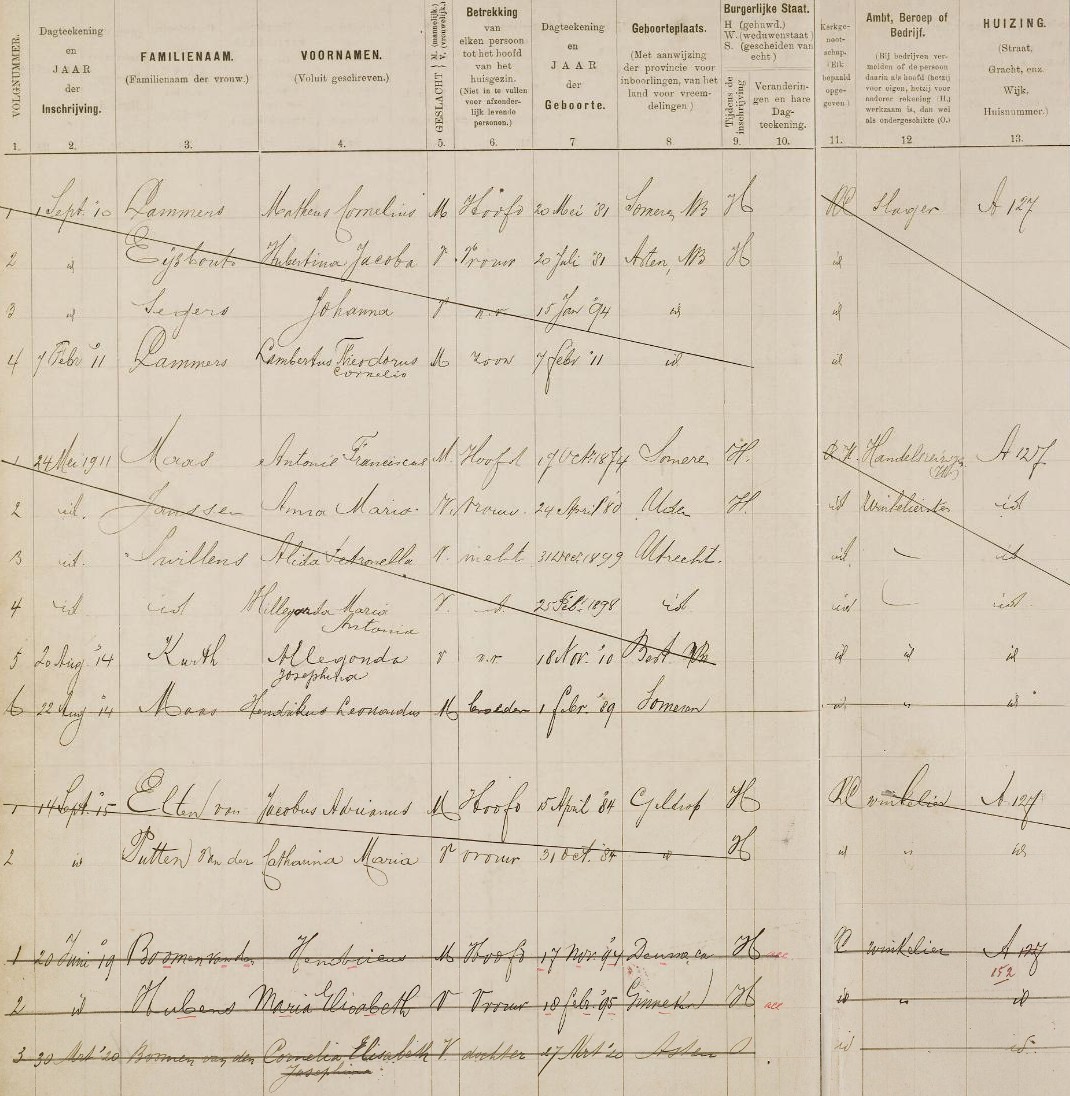 VOLGNUMMER.
Dagteekening en JAAR der Inschrijving.
FAMILIENAAM. (Familienaam der vrouw.)
VOORNAMEN. (Voluit geschreven.)
GESLACHT M. (mannelijk.) V. (vrouwelijk.)
Betrekking van elken persoon tot het hoofd van het huisgezin. (Niet in te vullen voor afzonderlijk levende personen.)
Dagteekening en JAAR der Geboorte.
Geboorteplaats. (Met aanwijzing der provincie voor inboorlingen, van het land voor vreemdelingen.)
Burgerlijke Staat. H (gehuwd.) W. (weduwenstaat) S. (gescheiden van echt.)
Tijdens de inschrijving
Veranderingen en hare Dagteekening.
Kerkgenootschap. (Elk bepaald opgegeven.)
Ambt, Beroep of Bedrijf. (Bij bedrijven vermelden of de persoon daarin als hoofd (hetzij voor eigen, hetzij voor anderer rekening (H.) werkzaam is, dan wel als ondergeschikte (O.)
HUIZING. (Straat, Gracht, enz. Wijk, Huisnummer.)
1. 2. 3. 4. 5. 6. 7 8 9. 10. 11. 12 13.
1 1 Sept. '10 Dammers Matheus Cornelius M Hoofd 20 Mei '81 Someren, NB H RC Slager A 127
2 id Eijsbouts Hubertina Jacoba V Vrouw 20 Juli '81 Asten, NB H id
3 id Segers Johanna V n.v. 15 Jan '94 id id
4 7 Febr '11 Dammers Lambertus Theodorus Cornelis M zoon 7 febr '11 id id
1 24 Mei 1911 Maas Antonie Franciscus M. Hoofd 17 Oct. 1874 Someren H. R.K. A 127
2 id. Janssen Anna Maria V. Vrouw. 24 April '80 Uden H. id Winkelierster id
3 id. Swillens Alida Petronella V. nicht 31 Dec 1899 Utrecht. id. id
4 id id Hillegonda Maria Antonia V. id. 25 Feb. 1898 id id id.
5 20 Aug '14 Kurth Allegonda Josephina V n.v 18 Nov. '10 Best. NB id id id
6 22 Aug '14 Maas Hendrikus Leonardus M broeder 1 febr. '89 Someren id " id
1 14 Sept. '15 Elten van Jacobus Adrianus M Hoofd 15 April '84 Geldrop H RC winkelier A 127
2 id Putten van der Catharina Maria V vrouw 31 oct. '84 id H id " id
1 20 Juni '19 Bommen van den Henricus M Hoofd 17 Nov. '94 Deurne ca H RC winkelier A 127
152
2 id Hubens Maria Elisabeth V Vrouw 18 febr. '95 Ginneken H id " id
3 30 Mrt '20 Bommen van den Cornelia Elisabeth Josephina V dochter 27 Mrt '20 Asten id id.